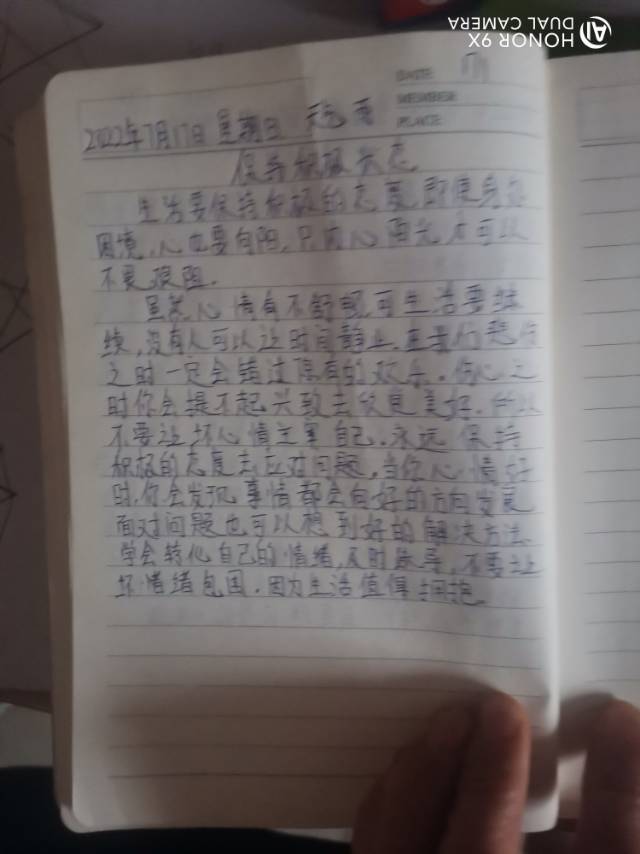 HONOR 9X
DUAL CAMERA
AI
DATE
NUMBER
PLACE
2022年7月17日 星期日 天气 雨
保持积极状态
生活要保持积极的态度,即使身处
困境,心也要向阳,只有心向阳光才可以
不畏艰阻.
虽然心情有不舒畅,可生活要继
续,没有人可以让时间静止.在我们悲伤
之时一定会错过原有的欢乐.伤心之
时你会提不起兴致去欣赏美好.所以
不要让坏心情主宰自己.永远保持
积极的态度去应对问题,当你心情好
时,你会发现事情都会向好的方向发展
面对问题也可以想到好的解决方法.
学会转化自己的情绪,及时疏导,不要让
坏情绪包围.因为生活值得拥抱